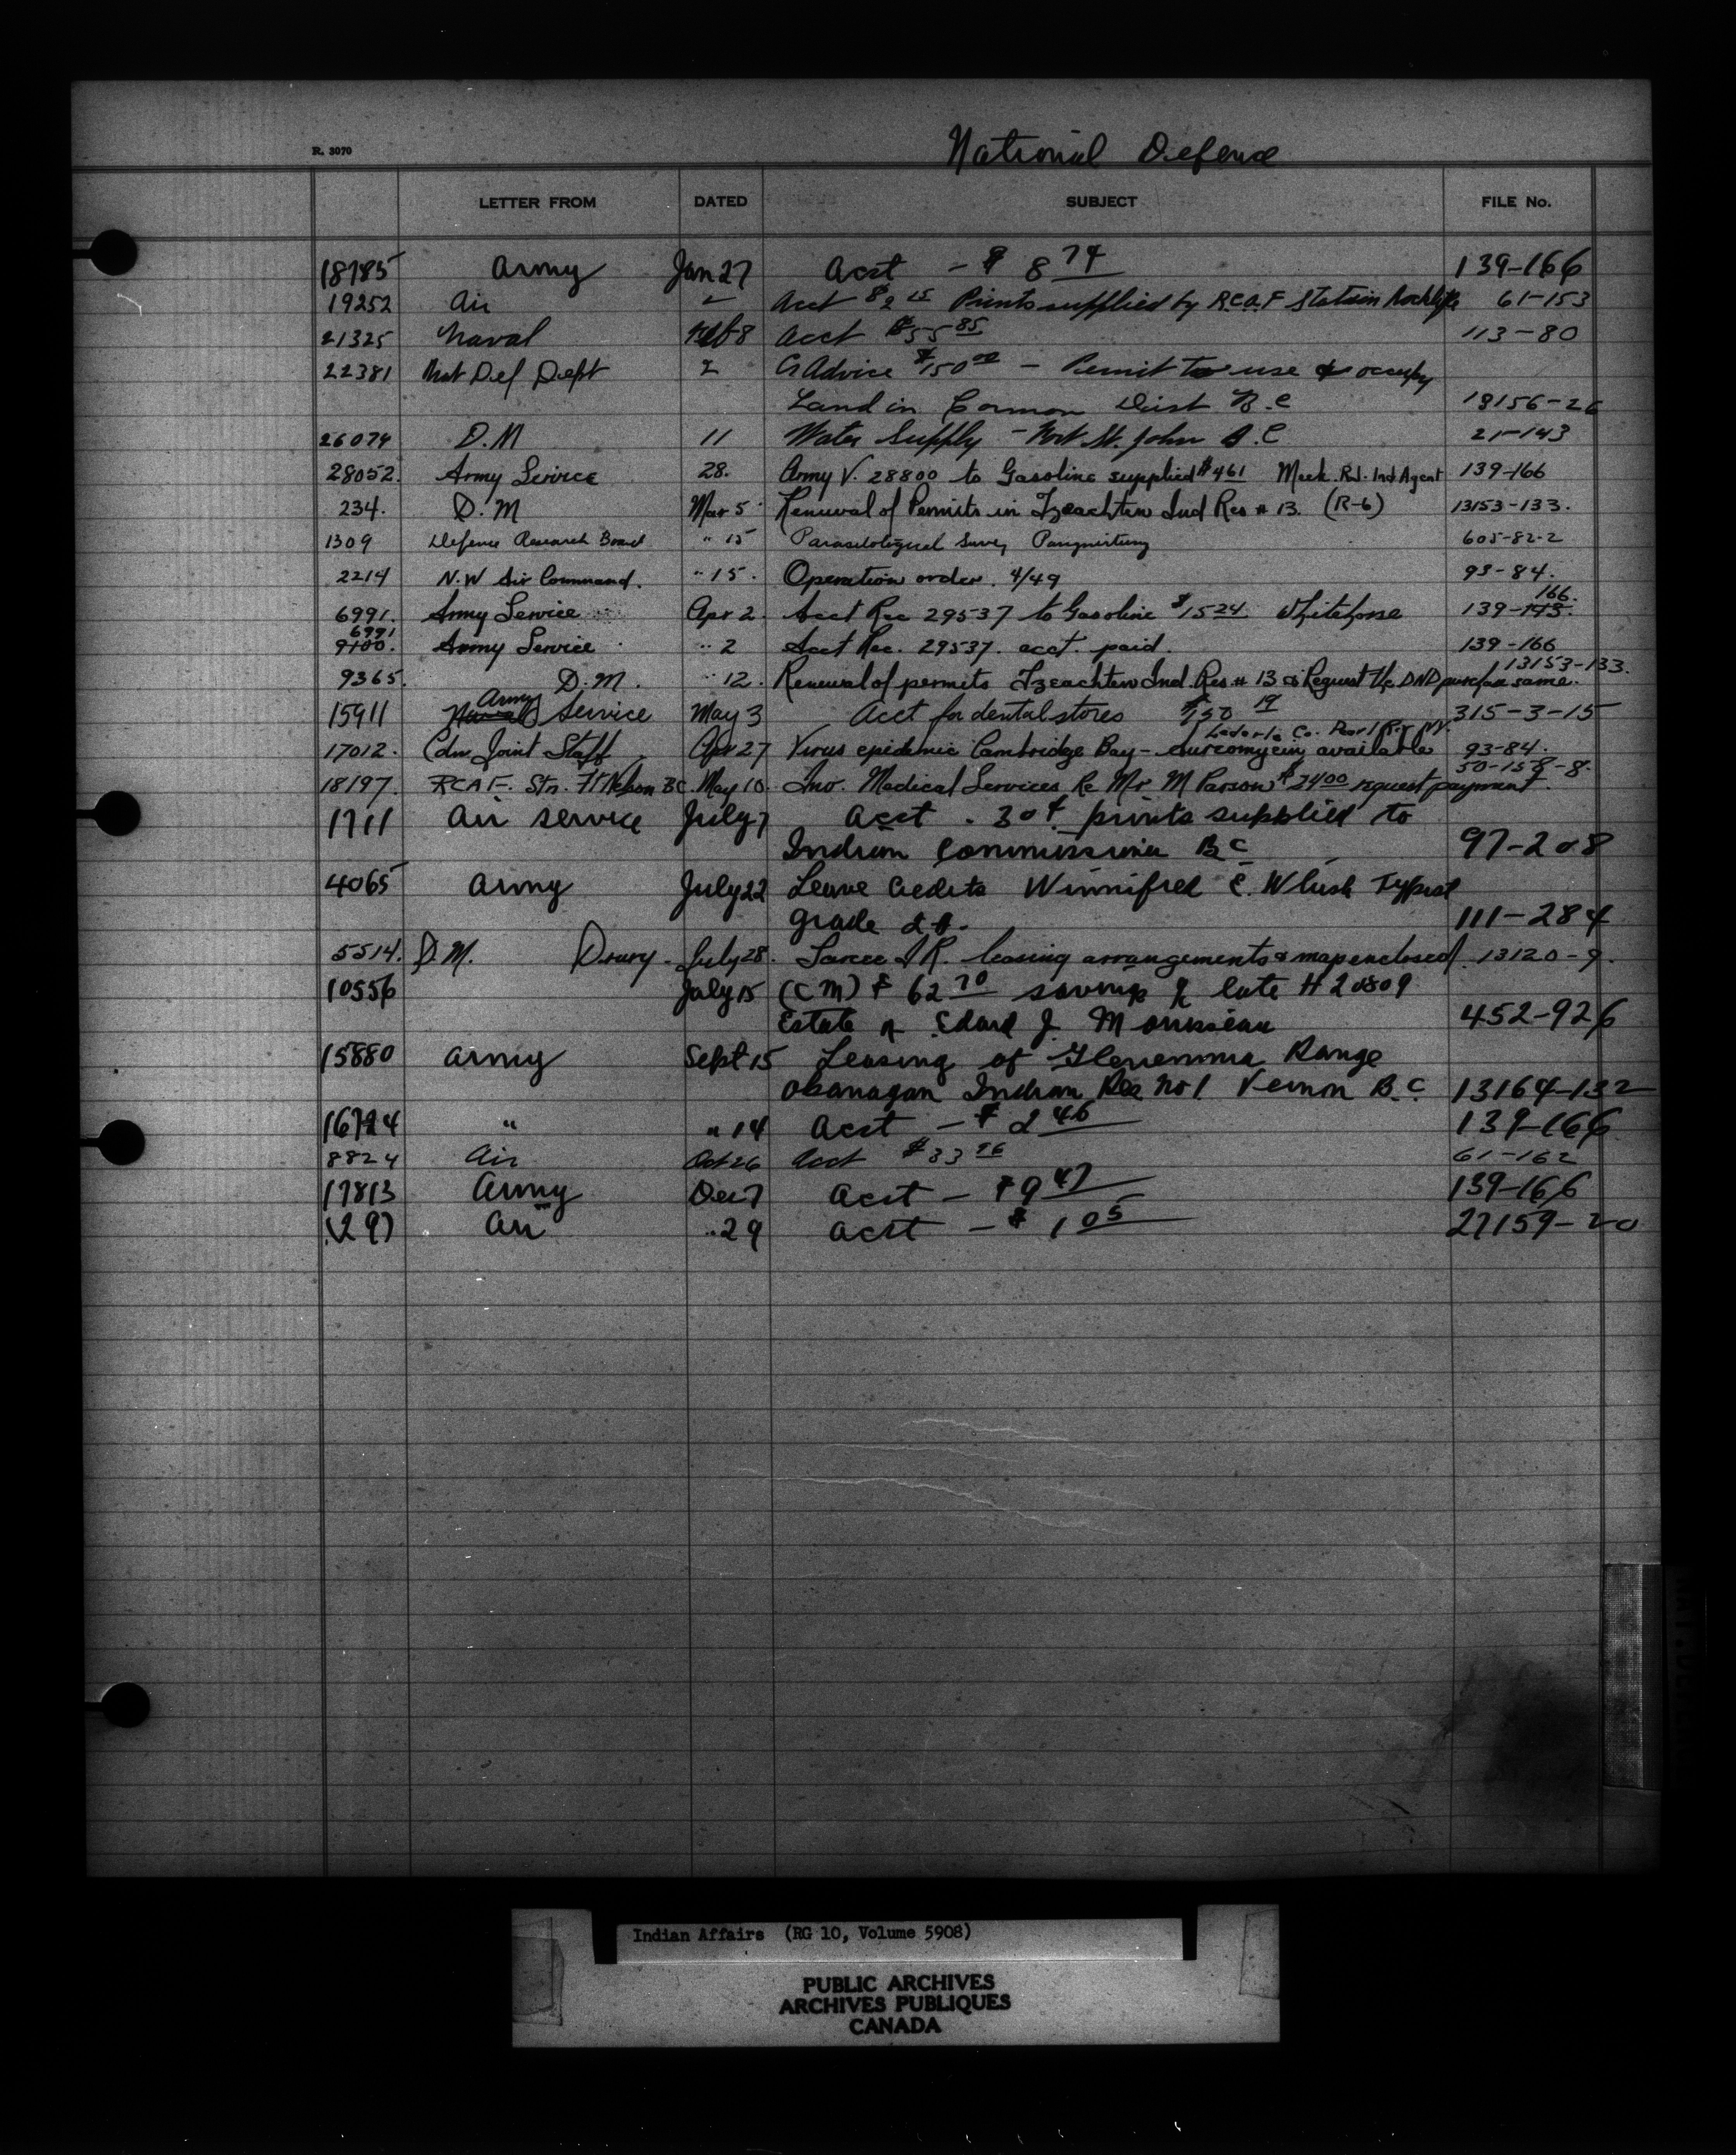 National Defence
R. 3070
LETTER FROM DATED SUBJECT FILE No.
18785 Army Jan 27 Acct - $ 8 74 139-166
19252 Air 2 Acct $2 15 Prints supplied by R.C.A.F Station Rockliffe 61-153
21325 Naval Feb 8 Acct $55 85 113-80
22381 Nat Def Dept 2 Cr Advice $150 00 - Permit to use & occupy
Land in Dist B.C 18156-26
26074 D.M 11 Water Supply - Fort St. John B.C 21-143
28052. Army Service 28. Army V. 28800 to Gasoline supplied $4 61 Meek. Rd. Ind Agent 139-166
234. D.M Mar 5 Renewal of Permits in Tzeachten Ind Res # 13. (R-6) 13153-133.
1309 Defence Research Board " 15 Parasitological Survey Pangnirtung 605-82-2
2214 N.W Air Command. " 15. Operation order. 4/49 93-84.
166.
6991. Army Service Apr 2. Acct Rec 29537 to Gasoline $15 24 Whitehorse 139-143.
6991
9100. Army Service " 2 Acct Rec. 29537. acct. paid. 139-166
13153-133.
9365. D.M. " 12. Renewal of permits Tzeachten Ind. Res. # 13 & Request the DND purchase same.
Army
15911 Naval Service May 3 Acct for dental stores $150 19 315-3-15
Lederle Co. Pearl R. NY.
17012. Cdn Joint Staff Apr 27 Virus epidemic Cambridge Bay - aureomycin available 93-84.
50-158-8.
18197. RCAF. Stn. Ft Nelson BC. May 10. Inv. Medical Services Re Mr M Parson $24 00 request payment.
1711 Air service July 7 Acct - 30¢ prints supplied to
Indian Commissioner BC 97-208
4065 Army July 22 Leave Credits Winnifred E. Typist
grade 2 111-284
5514. D.M. Drury. July 28. Sarcee I R. leasing arrangements & map enclosed 13120-9.
10556 July 15 (CM) $ 62 70 savings of late H 20809
Estate of Edard J. Mousseau 452-926
15880 Army Sept 15 Leasing of Glenemma Range
Okanagan Indian Res No 1 Vernon B.C 13164-132
16724 " " 14 Acct - $ 2 46 139-166
8824 Air Oct 26 Acct $33 96 61-162
17813 Army Dec 7 Acct - $9 47 139-166
(29) Air " 29 Acct - $ 1 05 27159-20
Indian Affairs (RG 10, Volume 5908)
PUBLIC ARCHIVES
ARCHIVES PUBLIQUES
CANADA